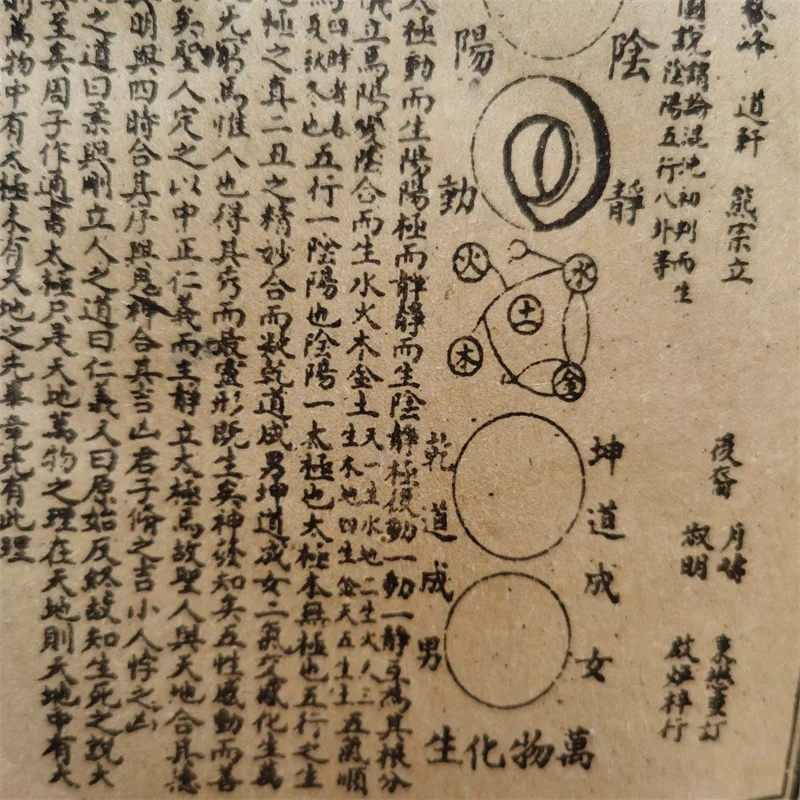 鰲峰 道軒 熊宗立
後裔 月疇
淑明
東城重訂
啟燦梓行
圖說鑄論混沌初判而生
陰陽五行八卦等
陰
靜
陽
動
火
水
土
木
金
坤道成女
乾道成男
萬物化生
太極動而生陽陽極而靜靜而生陰靜極復動一動一靜互為其根分
儀立焉陽變陰合而生水火木金土天一生水地二生火天三生木地四生金天五生土五氣順
焉四時者春夏秋冬也五行一陰陽也陰陽一太極也太極本無極也五行之生
極之真二五之精妙合而凝乾道成男坤道成女二氣交感化生萬
先躬焉惟人也得其秀而最靈形既生矣神發知矣五性感動而善
矣聖人定之以中正仁義而主靜立太極焉故聖人與天地合其德
明與四時合其序與鬼神合其吉凶君子脩之吉小人悖之凶
之道曰柔與剛立人之道曰仁義又曰原始反終故知生死之說大
其至矣周子作通書太極只是天地萬物之理在天地則天地中有太
萬物中有太極未有天地之先畢竟先有此理